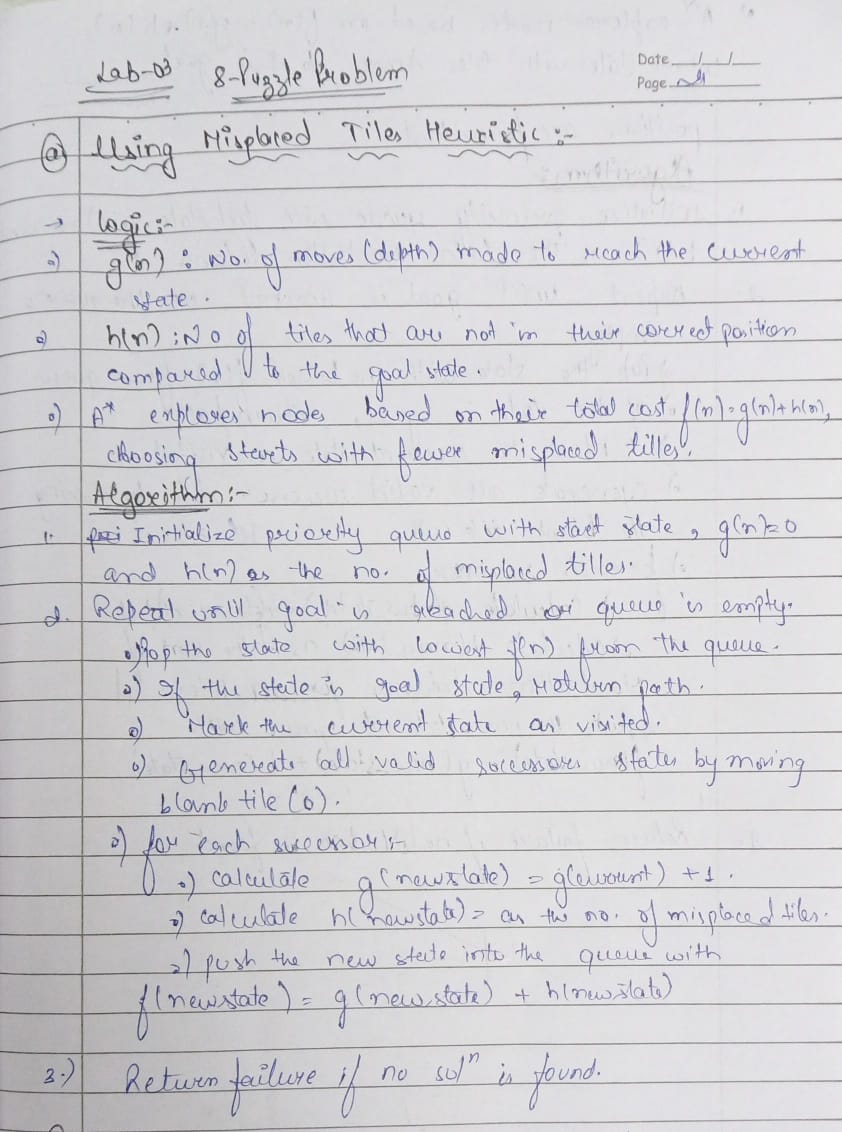 Lab-03 8-Puzzle Problem
Date / /
Page
(a) Using Misplaced Tiles Heuristic :-
→ Logic :-
o) g(n) : No. of moves (depth) made to reach the current
state.
o) h(n) : No of tiles that are not in their correct position
compared to the goal state.
o) A* explores nodes based on their total cost f(n)=g(n)+h(n),
choosing with fewer misplaced tilles.
Algorithm :-
1. Initialize priority queue with start state, g(n)=0
and h(n) as the no. of misplaced tilles.
2. Repeat until goal is reached or queue is empty.
o) Pop the state with lowest f(n) from the queue.
o) If the state is goal state, return path.
o) Mark the current state as visited.
o) Generate all valid successors states by moving
blank tile (0).
o) for each successor :-
o) calculate g(newstate) = g(current) +1.
o) calculate h(newstate) = as the no. of misplaced tiles.
o) push the new state into the queue with
f(newstate) = g(new state) + h(newstate)
3.) Return failure if no solⁿ is found.